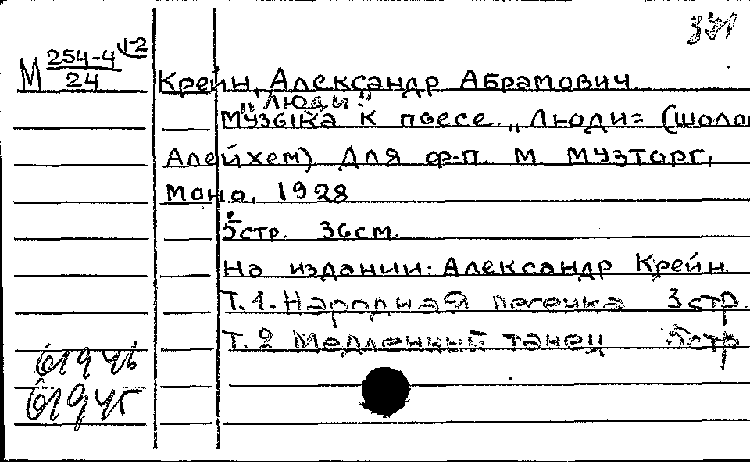 331
М 254-4 1-2
24
Крейн, Александр Абрамович
"Люди".
Музыка к пьесе „Люди" (Шолом
Алейхем) Для ф-п. М. Музторг,
Моно, 1928
5стр. 36см.
На издании: Александр Крейн
Т.1. Народная песенка 3 стр.
Т.2 Медленный танец 5стр
61946
61945